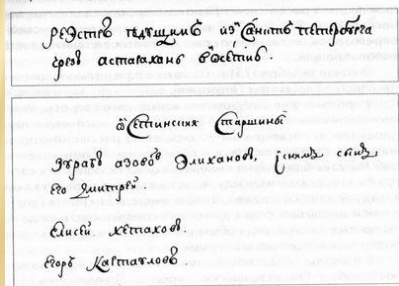 реэстръ едущимъ из Санктъ петербурга
чрезъ астрахань в осетию.
Осетинския старшины
Зурабъ азововъ Элиханов, с нимъ сынъ
его Дмитрей.
Елисей хетаховъ.
Егоръ Каетауловъ.